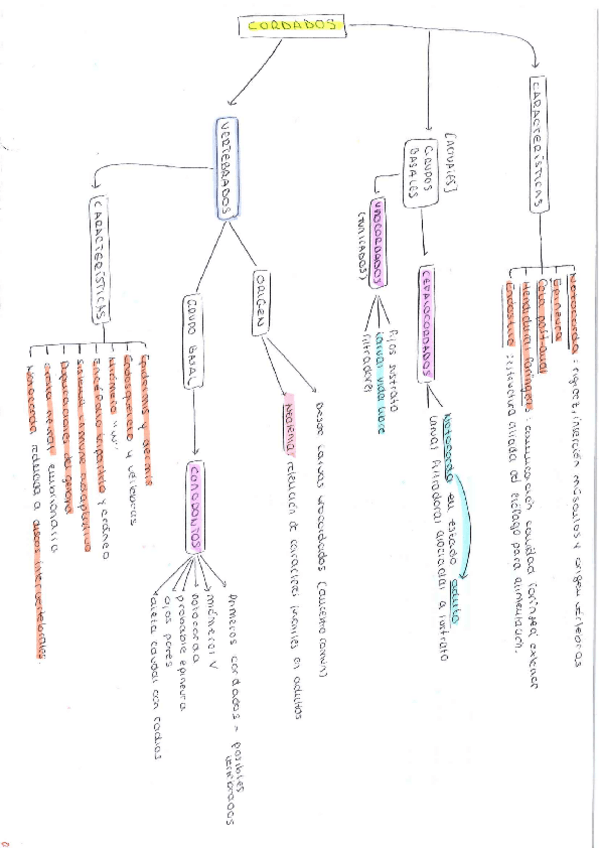 CORDADOS
CARACTERÍSTICAS
Notocorda: rigidez, inserción músculos y origen vertebras
Epineura
Cola post-anal
Hendiduras faríngeas: comunicación cavidad faríngea exterior
Endostilo: estructura aliada del esófago para alimentación.
[ACTUALES]
GRUPOS
BASALES
CEFALOCORDADOS
Notocorda en estado adulto
Larvas filtradoras asociadas a sustrato
UROCORDADOS
(TUNICADOS)
Fijos sustrato
Larvas vida libre
Filtradores
VERTEBRADOS
ORIGEN
Desde larvas urocordados (ancestro común)
Neotenia: retención de caracteres juveniles en adultos
GRUPO BASAL
CONODONTOS
Primeros cordados ~ posibles
vertebrados
miómeros V
notocorda
probable epineura
ojos pares
aleta caudal con radios
CARACTERÍSTICAS
Epidermis y dermis
Endoesqueleto y vértebras
Miómeros "W"
Encéfalo tripartito y cráneo
Sistema inmune adaptativo
Duplicaciones del genoma
Cresta neural embrionaria
Notocorda reducida a discos intervertebrales.